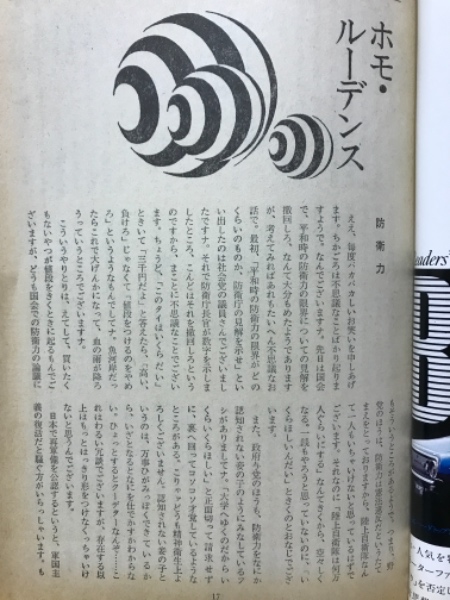 ホモ・
ルーデンス
防衛力
ええ、毎度バカバカしいお笑いを申しあげ
ます。ちかごろは不思議なことばかり起りま
すようで、なんでございますナ。先日は国会
で、平和時の防衛力の限界についての見解を
撤回しろ、なんて大分もめたようであります
が、考えてみればあれもたいへん不思議なお
話で。最初、「平和時の防衛力の限界がどの
くらいのものか、防衛庁の見解を示せ」とい
い出したのは社会党の議員さんでございまし
たですナ。それで防衛庁長官が数字を示しま
したところ、こんどはそれを撤回しろという
のですから、まことに不思議なことでござい
ます。ちょうど、「このタイはいくらだい」
ときいて「三千円だよ」と答えたら、「高い、
負けろ」じゃなくて「値段をつけるのをやめ
ろ」というようなもんでしてナ。魚河岸だっ
たらこれで大げんかになって、血の雨が降ろ
うっていうところでございます。
こういうやりとりは、えてして、買いたく
もないやつが値段をきくときに起るもんでご
ざいますが、どうも国会での防衛力の論議に
もそういうところがあるようで。つまり、野
党のほうは、防衛力は憲法違反というたて
まえをとっておりますから、陸上自衛隊なん
て一人もいちゃいけないと思っているはずで
ございます。それなのに「陸上自衛隊は何万
人ぐらいにする」なんてきくから、空々しく
なる。一銭もやろうと思っていないのに、「い
くらほしいんだい」ときくのとおなじでござ
います。
また、政府与党のほうも、防衛力をなにか
認知されない妾の子のようにみなしているフ
シがありましてナ。「大学へゆくのだからい
くらいくらほしい」と正面切って請求せず
に、裏へ回ってコソコソ才覚しているような
ところがある。こりゃどうも精神衛生上よ
ろしくございません。認知されない妾の子と
いうのは、万事ひがみっぽくできているか
ら、いざとなるとなにを仕でかすかわからな
い。ひょっとするとクーデターなんぞ……こ
れはわるい冗談でございますが、存在する以
上はもっとはっきり形をつけなくっちゃいけ
ないと思うんでございます。
日本で再軍備を公認するというと、軍国主
義の復活だと騒ぐ方がいらっしゃいます。も
17
eaders'
人気を
ーターファ
を否定し